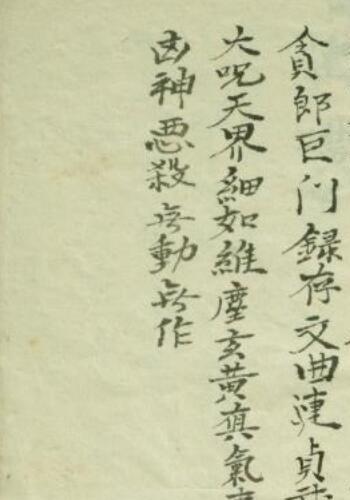 貪郎巨门録存文曲連貞
大呪天界細如維塵玄黄真氣
凶神悪殺無動無作